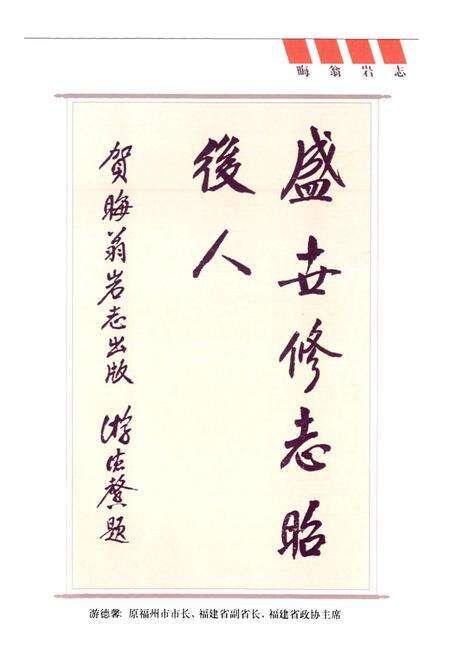 晦翁岩志
盛世修志昭
後人
贺晦翁岩志出版 游德馨题
游德馨：原福州市市长、福建省副省长、福建省政协主席